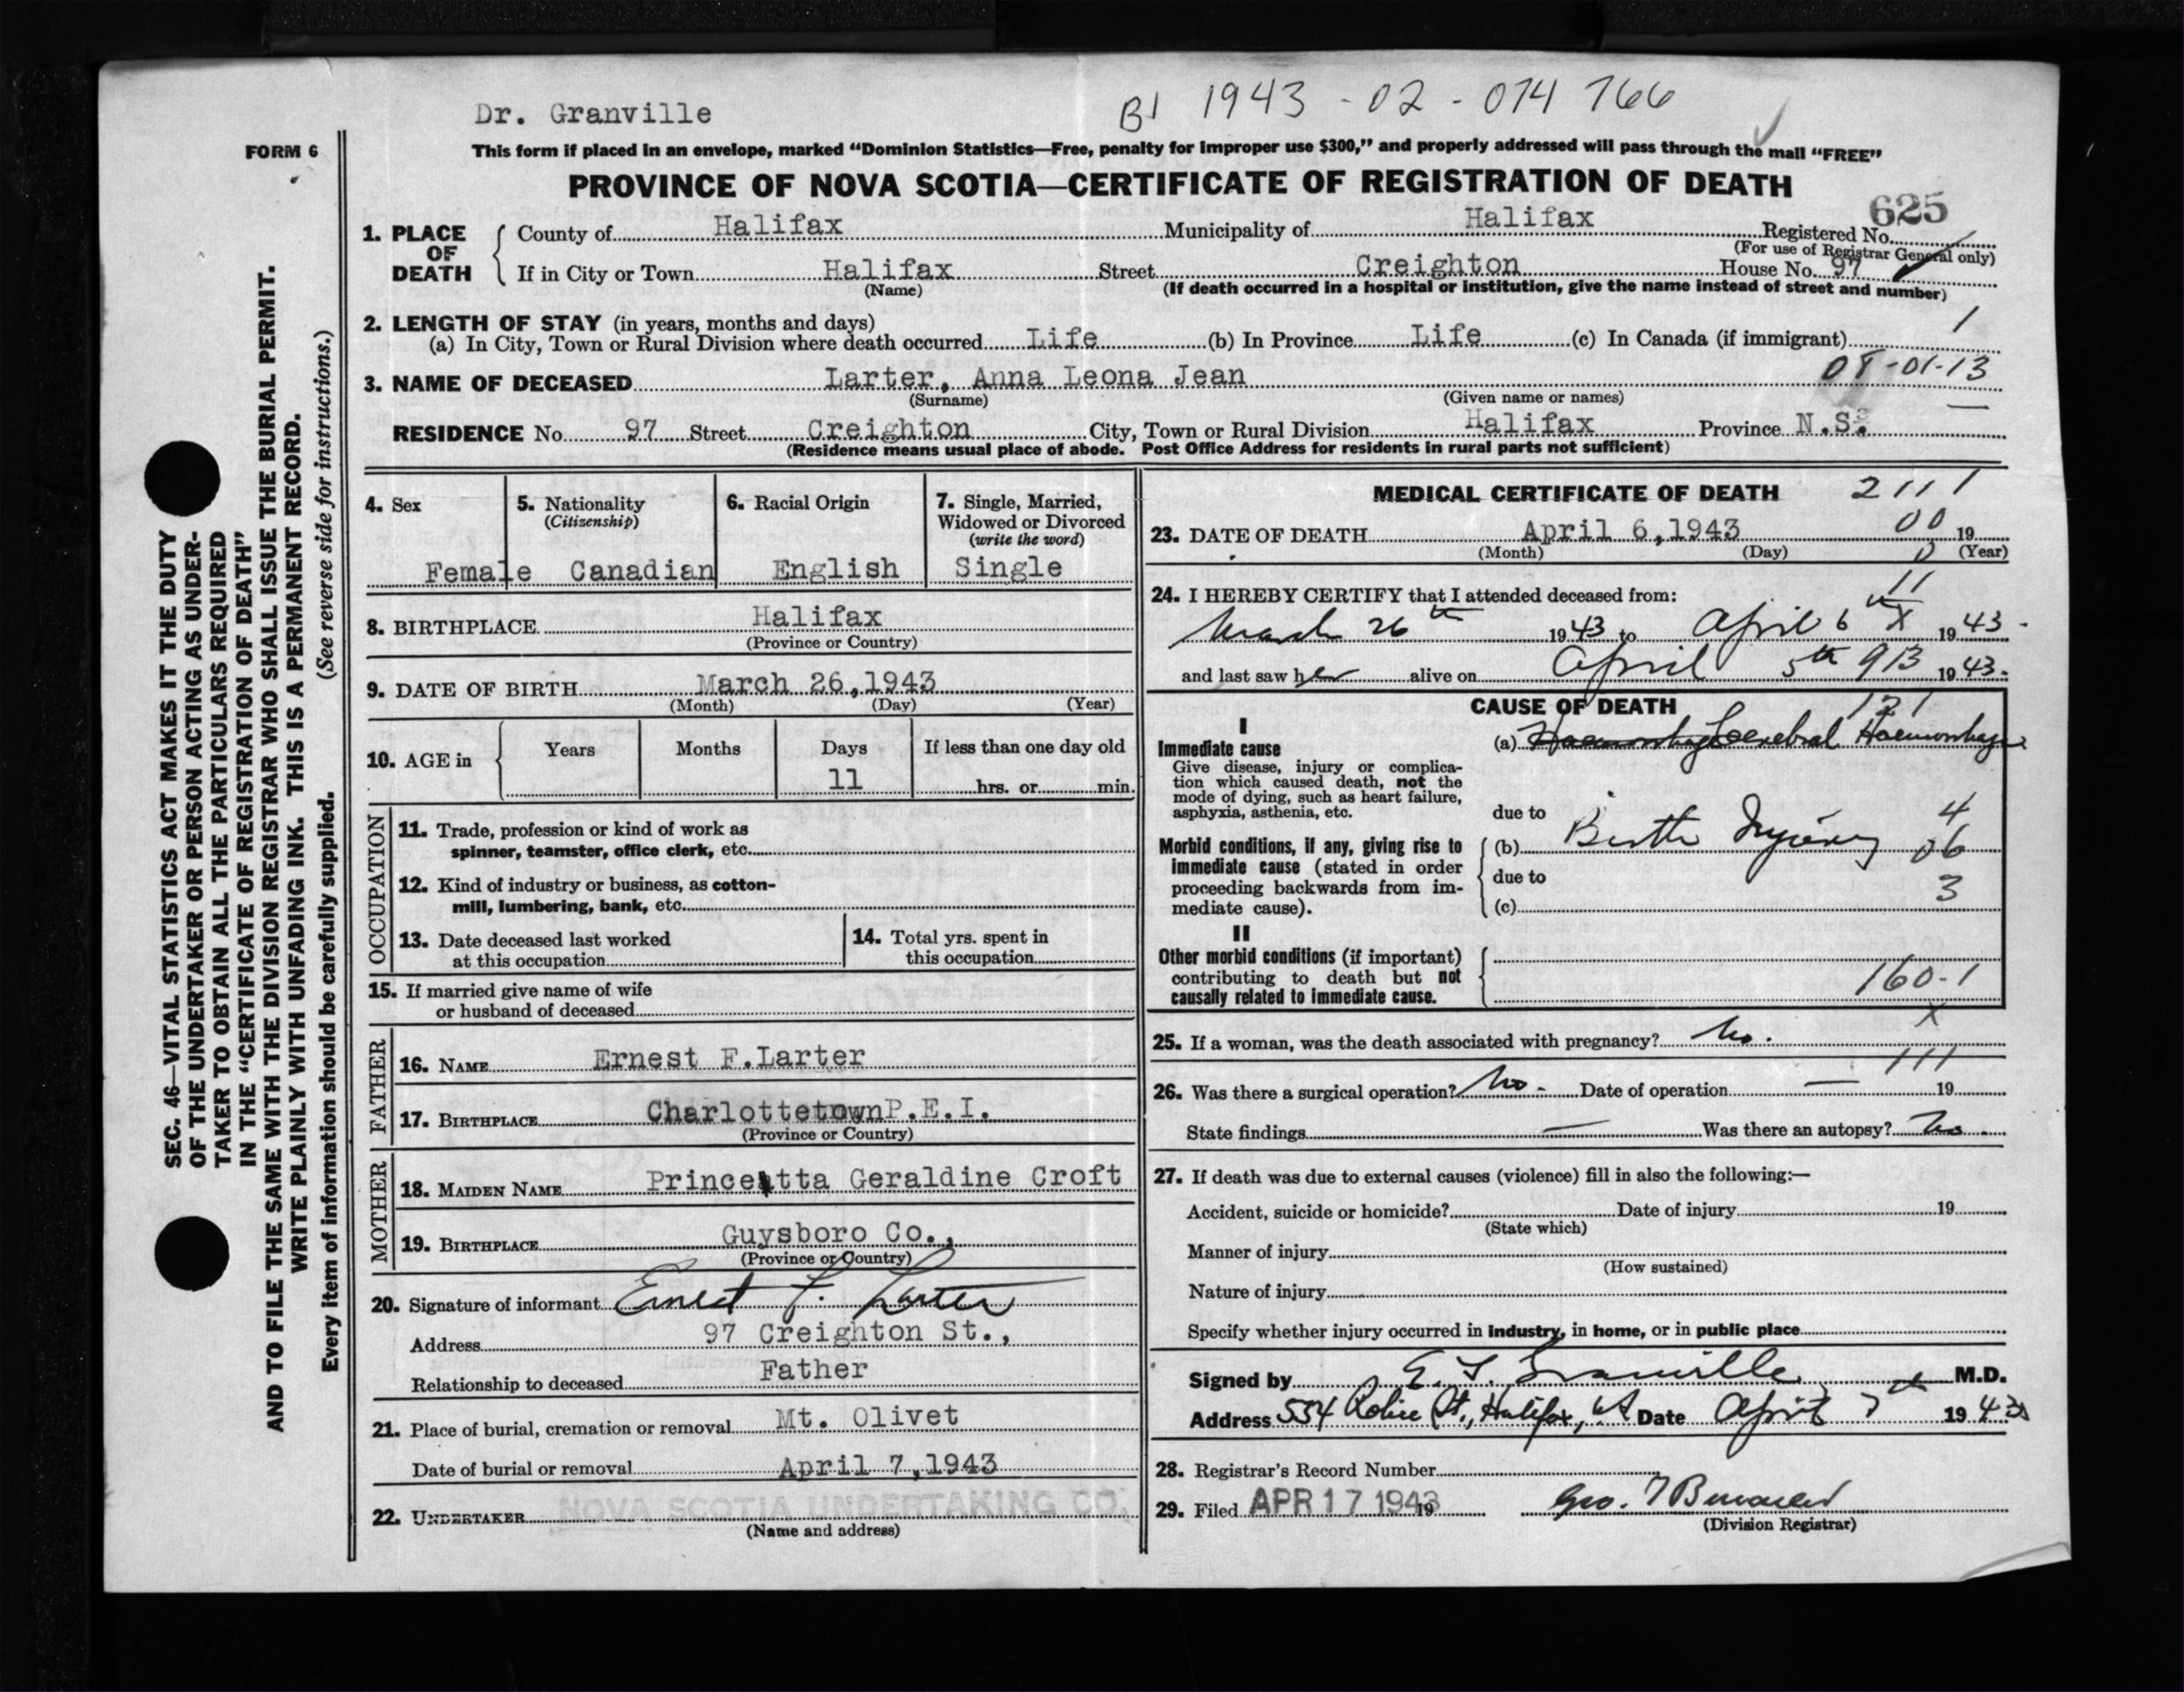 Dr. Granville
B1 1943-02-074766
FORM 6
This form if placed in an envelope, marked “Dominion Statistics—Free, penalty for improper use $300,” and properly addressed will pass through the mail “FREE”
PROVINCE OF NOVA SCOTIA—CERTIFICATE OF REGISTRATION OF DEATH
625
1. PLACE OF DEATH
County of Halifax Municipality of Halifax Registered No.
(For use of Registrar General only)
If in City or Town Halifax Street Creighton House No. 97
(Name) (If death occurred in a hospital or institution, give the name instead of street and number)
2. LENGTH OF STAY (in years, months and days)
1
(a) In City, Town or Rural Division where death occurred Life (b) In Province Life (c) In Canada (if immigrant)
3. NAME OF DECEASED Larter, Anna Leona Jean 08-01-13
(Surname) (Given name or names)
RESIDENCE No. 97 Street Creighton City, Town or Rural Division Halifax Province N.S.
(Residence means usual place of abode. Post Office Address for residents in rural parts not sufficient)
4. Sex
Female
5. Nationality
(Citizenship)
Canadian
6. Racial Origin
English
7. Single, Married,
Widowed or Divorced
(write the word)
Single
8. BIRTHPLACE Halifax
(Province or Country)
9. DATE OF BIRTH March 26,1943
(Month) (Day) (Year)
10. AGE in
Years Months Days If less than one day old
11 hrs. or min.
OCCUPATION
11. Trade, profession or kind of work as
spinner, teamster, office clerk, etc.
12. Kind of industry or business, as cotton-
mill, lumbering, bank, etc.
13. Date deceased last worked
at this occupation
14. Total yrs. spent in
this occupation
15. If married give name of wife
or husband of deceased
FATHER
16. NAME Ernest F.Larter
17. BIRTHPLACE CharlottetownP.E.I.
(Province or Country)
MOTHER
18. MAIDEN NAME Princetta Geraldine Croft
19. BIRTHPLACE Guysboro Co.,
(Province or Country)
20. Signature of informant Ernest F. Larter
Address 97 Creighton St.,
Relationship to deceased Father
21. Place of burial, cremation or removal Mt. Olivet
Date of burial or removal April 7,1943
22. UNDERTAKER NOVA SCOTIA UNDERTAKING CO.
(Name and address)
MEDICAL CERTIFICATE OF DEATH 2111
23. DATE OF DEATH April 6,1943 00 19
(Month) (Day) (Year)
0
11
24. I HEREBY CERTIFY that I attended deceased from:
March 26th 1943 to April 6th X 1943
and last saw her alive on April 5th 913 1943
CAUSE OF DEATH 121
I
Immediate cause
Give disease, injury or complica-
tion which caused death, not the
mode of dying, such as heart failure,
asphyxia, asthenia, etc.
(a) Haemorrhage Cerebral Haemorrhage
due to 4
Morbid conditions, if any, giving rise to
immediate cause (stated in order
proceeding backwards from im-
mediate cause).
(b) Birth Injury 06
due to 3
(c)
II
Other morbid conditions (if important)
contributing to death but not
causally related to immediate cause.
160-1
X
25. If a woman, was the death associated with pregnancy? No.
111
26. Was there a surgical operation? No - Date of operation — 19
State findings — Was there an autopsy? No.
27. If death was due to external causes (violence) fill in also the following:—
Accident, suicide or homicide? Date of injury 19
(State which)
Manner of injury
(How sustained)
Nature of injury
Specify whether injury occurred in industry, in home, or in public place
Signed by E. F. Granville M.D.
Address 554 Robie St., Halifax, NS Date April 7th 1943
28. Registrar's Record Number
29. Filed APR 17 1943 19 Geo.
(Division Registrar)
SEC. 46—VITAL STATISTICS ACT MAKES IT THE DUTY
OF THE UNDERTAKER OR PERSON ACTING AS UNDER-
TAKER TO OBTAIN ALL THE PARTICULARS REQUIRED
IN THE “CERTIFICATE OF REGISTRATION OF DEATH”
AND TO FILE THE SAME WITH THE DIVISION REGISTRAR WHO SHALL ISSUE THE BURIAL PERMIT.
WRITE PLAINLY WITH UNFADING INK. THIS IS A PERMANENT RECORD.
Every item of information should be carefully supplied. (See reverse side for instructions.)